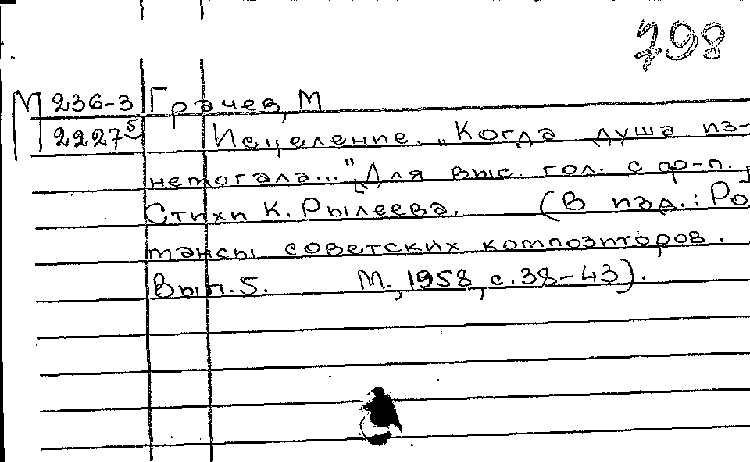 798
М 236-3 Грачев, М
2227⁵ Исцеление. „Когда душа из-
немогала..." Для выс. гол. с ф-п.,
Стихи К. Рылеева. (В изд.: Ро
мансы советских композиторов.
Вып. 5. М., 1958, с. 38-43).